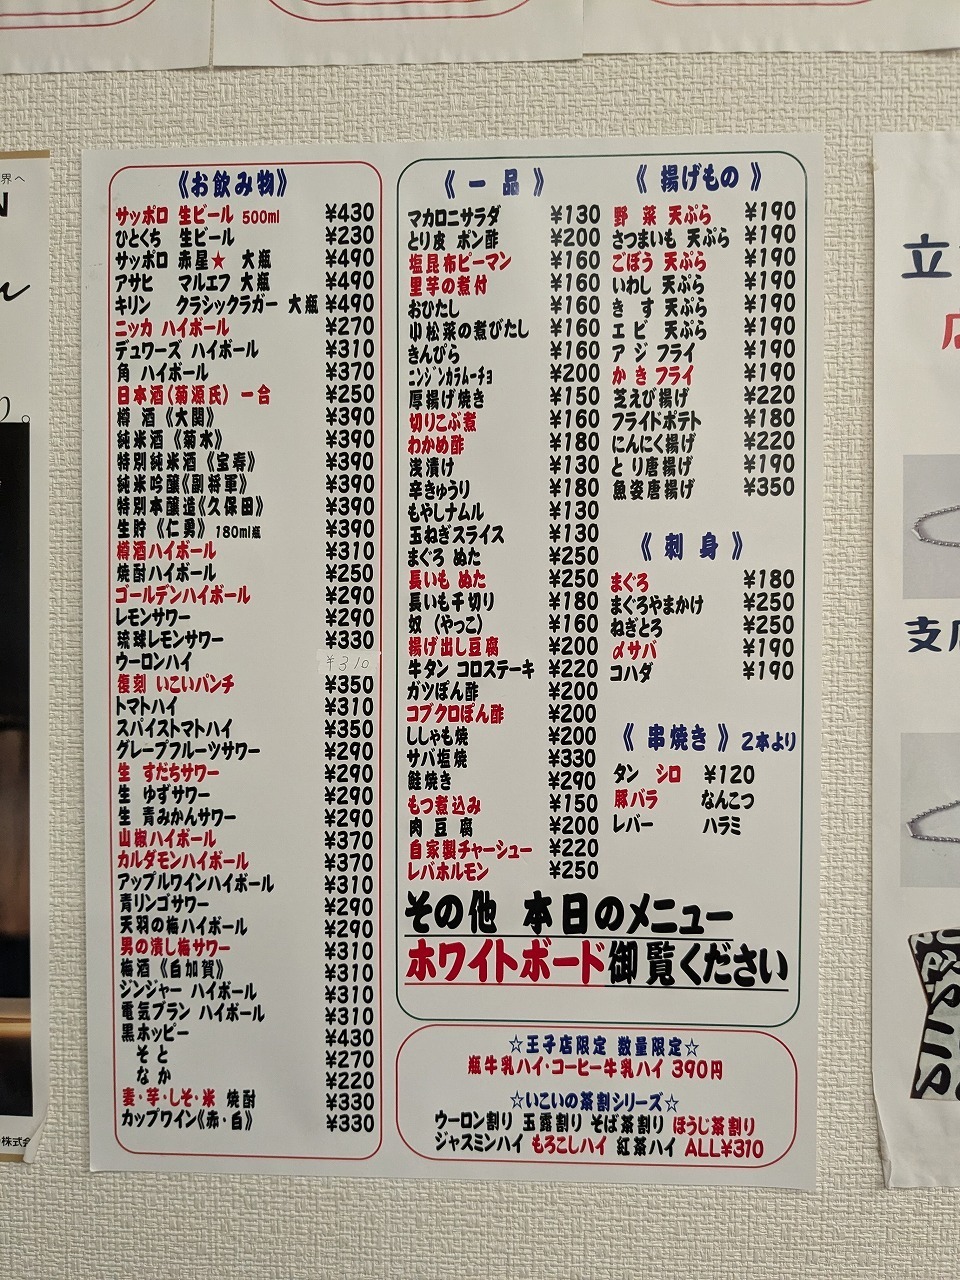 《お飲み物》
サッポロ 生ビール 500ml ¥430
ひとくち 生ビール ¥230
サッポロ 赤星★ 大瓶 ¥490
アサヒ マルエフ 大瓶 ¥490
キリン クラシックラガー 大瓶 ¥490
ニッカ ハイボール ¥270
デュワーズ ハイボール ¥310
角 ハイボール ¥370
日本酒(菊源氏) 一合 ¥250
樽 酒《大関》 ¥390
純米酒《菊水》 ¥390
特別純米酒《宝寿》 ¥390
純米吟醸《副将軍》 ¥390
特別本醸造《久保田》 ¥390
生貯《仁勇》 180ml瓶 ¥390
樽酒ハイボール ¥310
焼酎ハイボール ¥250
ゴールデンハイボール ¥290
レモンサワー ¥290
琉球レモンサワー ¥330
ウーロンハイ ¥310
復刻 いこいパンチ ¥350
トマトハイ ¥310
スパイストマトハイ ¥350
グレープフルーツサワー ¥290
生 すだちサワー ¥290
生 ゆずサワー ¥290
生 青みかんサワー ¥290
山椒ハイボール ¥370
カルダモンハイボール ¥370
アップルワインハイボール ¥310
青リンゴサワー ¥290
天羽の梅ハイボール ¥290
男の潰し梅サワー ¥310
梅酒《白加賀》 ¥310
ジンジャー ハイボール ¥310
電気ブラン ハイボール ¥310
黒ホッピー ¥430
そと ¥270
なか ¥220
麦・芋・しそ・米 焼酎 ¥330
カップワイン《赤・白》 ¥330
《一品》
マカロニサラダ ¥130
とり皮 ポン酢 ¥200
塩昆布ピーマン ¥160
里芋の煮付 ¥160
おひたし ¥160
小松菜の煮びたし ¥160
きんぴら ¥160
ニンジンカラムーチョ ¥200
厚揚げ焼き ¥150
切りこぶ煮 ¥160
わかめ酢 ¥180
浅漬け ¥130
辛きゅうり ¥180
もやしナムル ¥130
玉ねぎスライス ¥130
まぐろ ぬた ¥250
長いも ぬた ¥250
長いも千切り ¥180
奴 (やっこ) ¥160
揚げ出し豆腐 ¥200
牛タン コロステーキ ¥220
ガツぽん酢 ¥200
コブクロぽん酢 ¥200
ししゃも焼 ¥200
サバ塩焼 ¥330
鮭焼き ¥290
もつ煮込み ¥150
肉 豆 腐 ¥200
自家製チャーシュー ¥220
レバホルモン ¥250
《揚げもの》
野 菜 天ぷら ¥190
さつまいも 天ぷら ¥190
ごぼう 天ぷら ¥190
いわし 天ぷら ¥190
き す 天ぷら ¥190
エ ビ 天ぷら ¥190
ア ジ フライ ¥190
か き フライ ¥190
芝えび揚げ ¥220
フライドポテト ¥180
にんにく揚げ ¥220
と り 唐揚げ ¥190
魚姿唐揚げ ¥350
《刺身》
まぐろ ¥180
まぐろやまかけ ¥250
ねぎとろ ¥250
〆サバ ¥190
コハダ ¥190
《串焼き》2本より
タン シロ ¥120
豚バラ なんこつ
レバー ハラミ
その他 本日のメニュー
ホワイトボード御覧ください
☆王子店限定 数量限定☆
瓶牛乳ハイ・コーヒー牛乳ハイ 390円
☆いこいの茶割シリーズ☆
ウーロン割り 玉露割り そば茶割り ほうじ茶割り
ジャスミンハイ もろこしハイ 紅茶ハイ ALL¥310
界へ
N
り。
株式会
立
支店